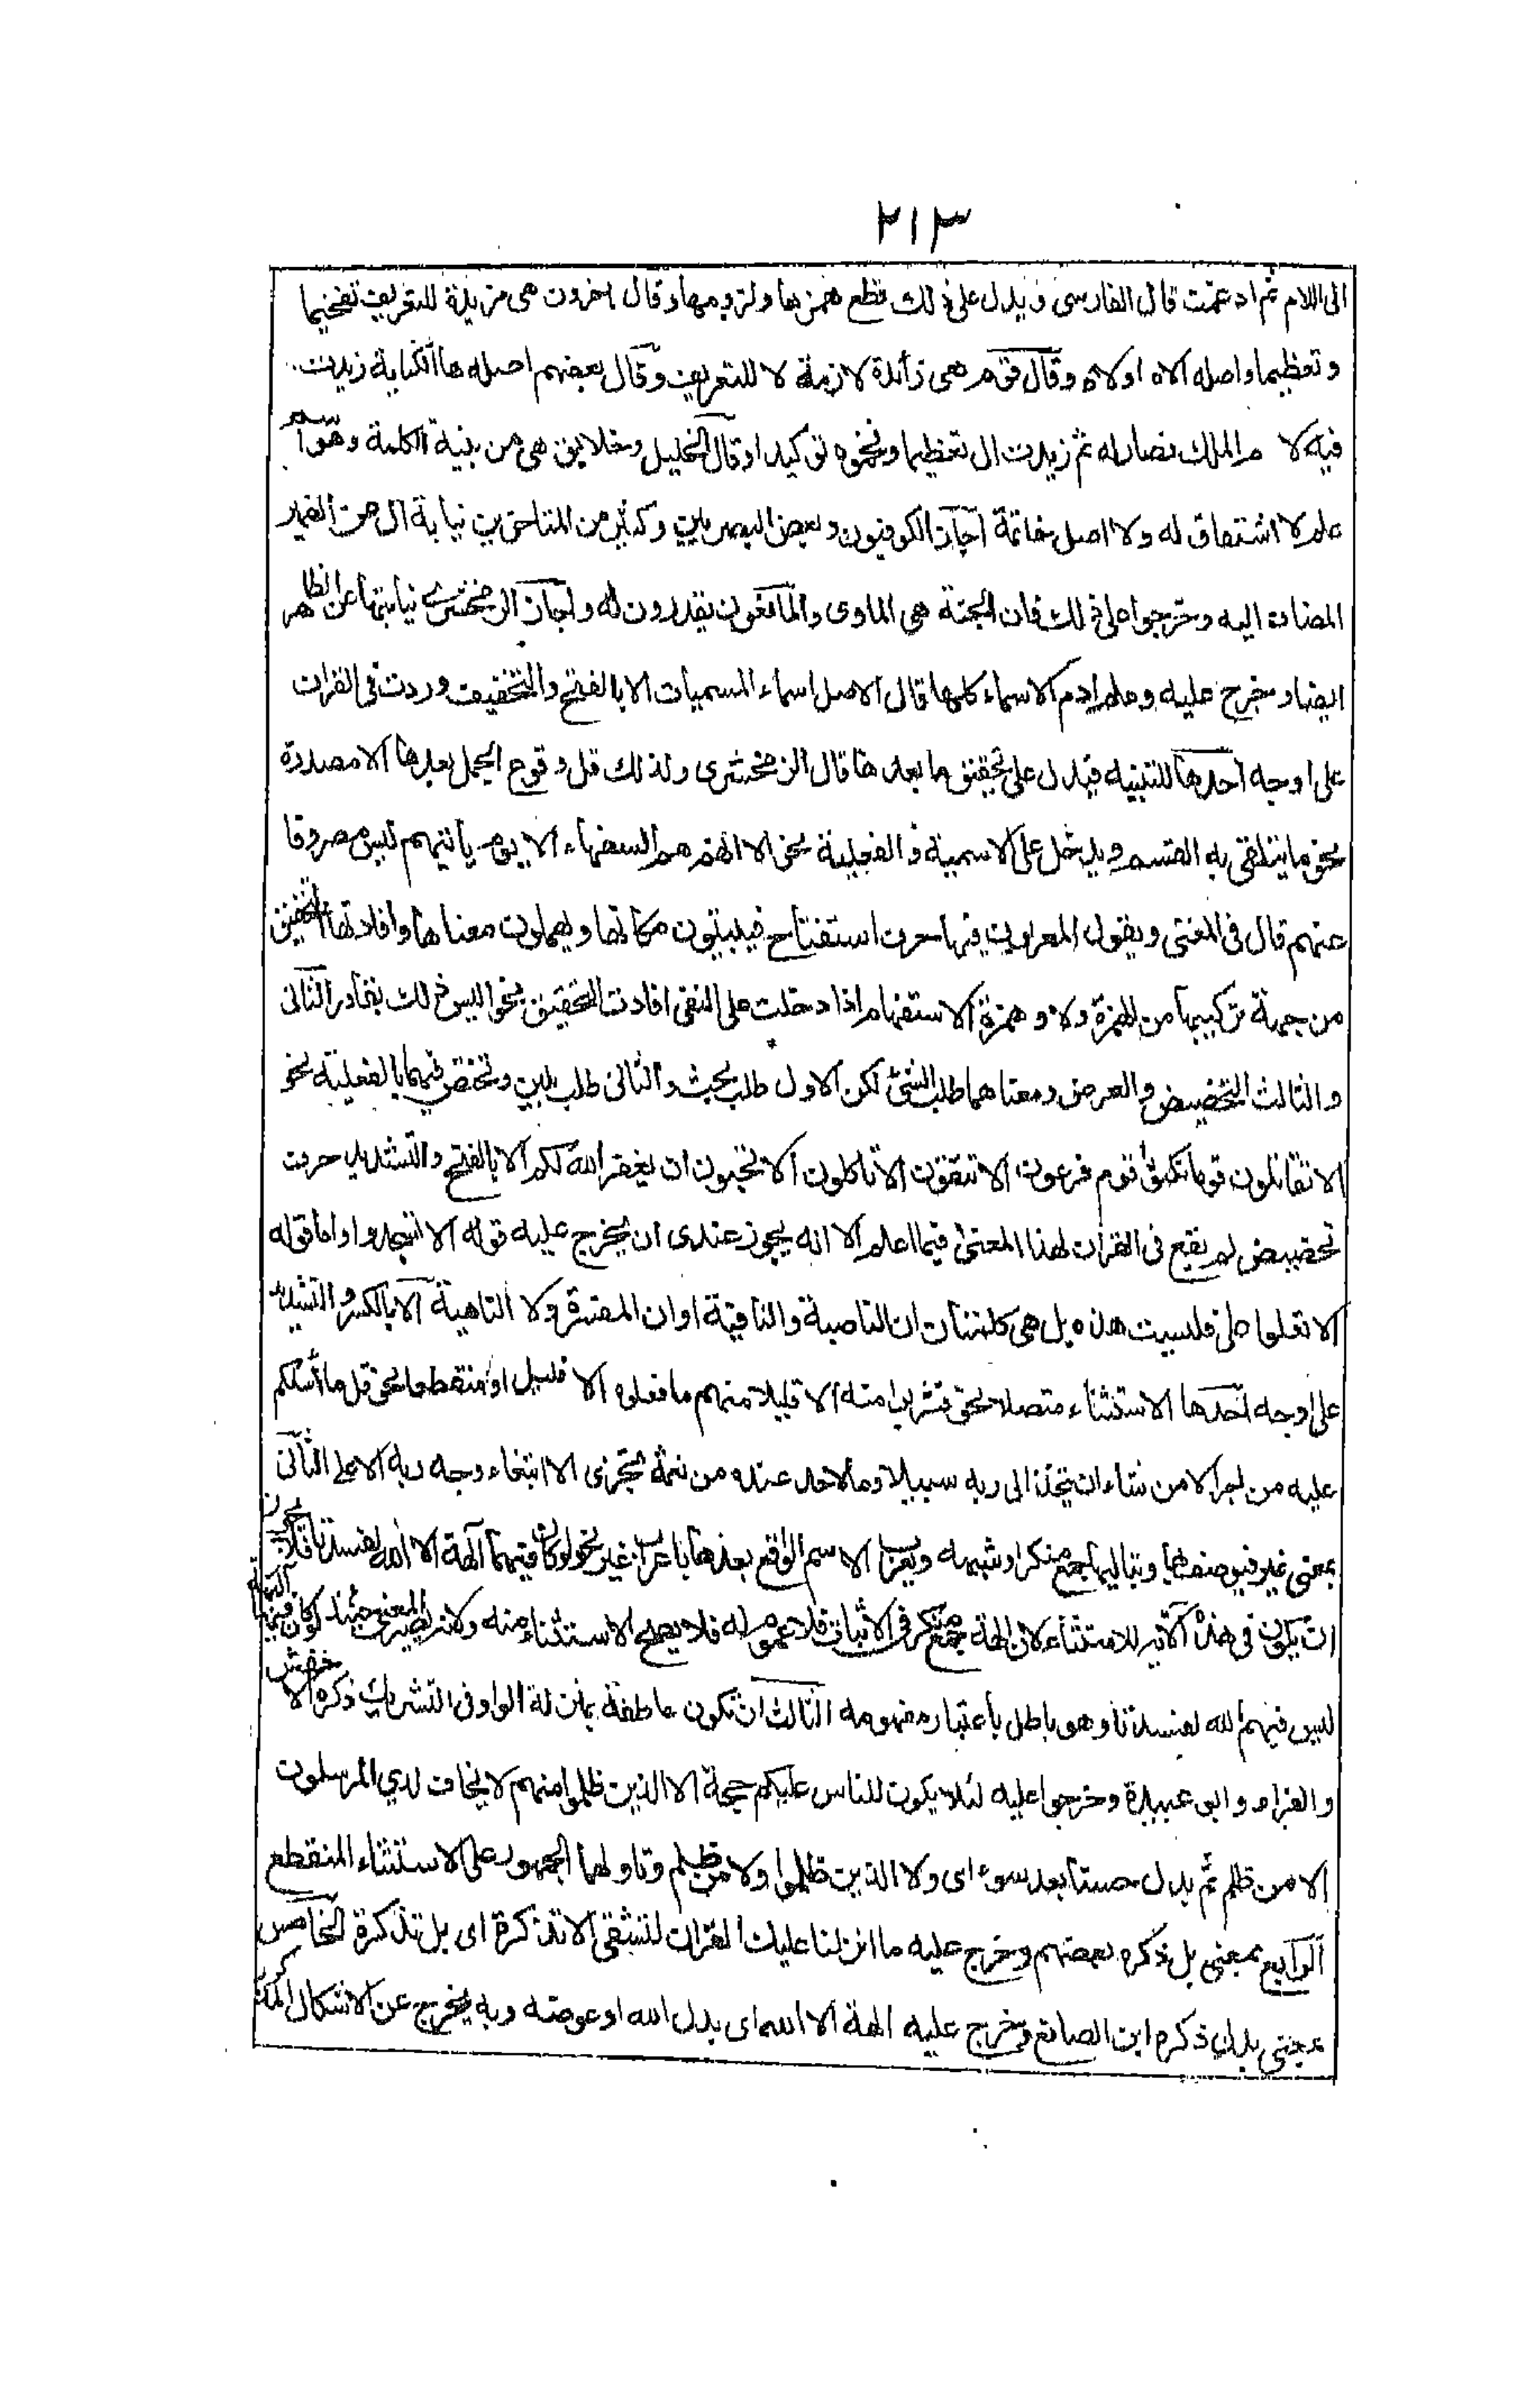 ٢١٣
الى اللام ثم ادغمت قال الفارسى ويدل على ذلك قطع همزها ولزومها وقال اخرون هى مزيدة للتعريف تفخيما
وتعظيما واصله الاه او لاه وقال قوم هى زائدة لازمة لا للتعريف وقال بعضهم اصله هاء الكناية زيدت
فيه لام الملك فصار له ثم زيدت ال تعظيما وفخموه توكيدا وقال الخليل وخلايق هى من بنية الكلمة وهو اسم
علم لا اشتقاق له ولا اصل خاتمة اجاز الكوفيون وبعض البصريين وكثير من المتاخرين نيابة ال عن الضمير
المضاف اليه وخرجوا على ذلك فان الجنة هى الماوى والمانعون يقدرون له واجاز الزمخشرى نيابتها عن الظاهر
ايضا وخرج عليه وعلم ادم الاسماء كلها قال الاصل اسماء المسميات الا بالفتح والتخفيف وردت فى القران
على اوجه احدها للتنبيه فيدل على تحقيق ما بعدها قال الزمخشرى ولذلك قل وقوع الجمل بعدها الا مصدرة
بنحو ما يتلقى به القسم ويدخل على الاسمية والفعلية نحو الا انهم هم السفهاء الا يوم ياتيهم ليس مصروفا
عنهم قال فى المغنى ويقول المعربون فيها حرف استفتاح فيبينون مكانها ويهملون معناها وافادتها التحقيق
من جهة تركيبها من الهمزة ولا وهمزة الاستفهام اذا دخلت على النفى افادت التحقيق نحو اليس ذلك بقادر الثانى
والثالث التحضيض والعرض ومعناهما طلب الشئ لكن الاول طلب بحث والثانى طلب بلين وتختص فيهما بالفعلية نحو
الا تقاتلون قوما نكثوا قوم فرعون الا تتقون الا تاكلون الا تحبون ان يغفر الله لكم الا بالفتح والتشديد حرف
تحضيض لم يقع فى القران لهذا المعنى فيما اعلم الا انه يجوز عندى ان يخرج عليه قوله الا اتسجدوا واما قوله
الا تعلوا على فليست هذه بل هى كلمتان ان الناصبة والنافية او ان المفسرة ولا الناهية الا بالكسر والتشديد
على اوجه احدها الاستثناء متصلا نحو فشربوا منه الا قليلا منهم ما فعلوه الا قليل او منقطعا نحو قل ما أسئلكم
عليه من اجر الا من شاء ان يتخذ الى ربه سبيلا وما لاحد عنده من نعمة تجزى الا ابتغاء وجه ربه الاعلى الثانى
بمعنى غير فيوصف بها وبتاليها جمع منكر او شبهه ويعرب الاسم الواقع بعدها باعراب غير نحو لو كان فيهما آلهة الا الله لفسدتا فلا يجوز
ان يكون فى هذه الآية للاستثناء لان الهة جمع منكر فى الاثبات فلا عموم له فلا يصح الاستثناء منه ولانه يصير المعنى حينئذ لو كان فيهما آلهة
ليس فيهم الله لفسدتا وهو باطل باعتبار مفهومه الثالث ان تكون عاطفة بمنزلة الواو فى التشريك ذكره الاخفش
والفراء وابو عبيدة وخرجوا عليه لئلا يكون للناس عليكم حجة الا الذين ظلموا منهم لا يخاف لدي المرسلون
الا من ظلم ثم بدل حسنا بعد سوء اى ولا الذين ظلموا ولا من ظلم وتاولهما الجمهور على الاستثناء المنقطع
الرابع بمعنى بل ذكره بعضهم وخرج عليه ما انزلنا عليك القران لتشقى الا تذكرة اى بل تذكرة الخامس
بمعنى بدل ذكره ابن الصانع وخرج عليه الهة الا الله اى بدل الله او عوضه وبه يخرج عن الاشكال المذكور